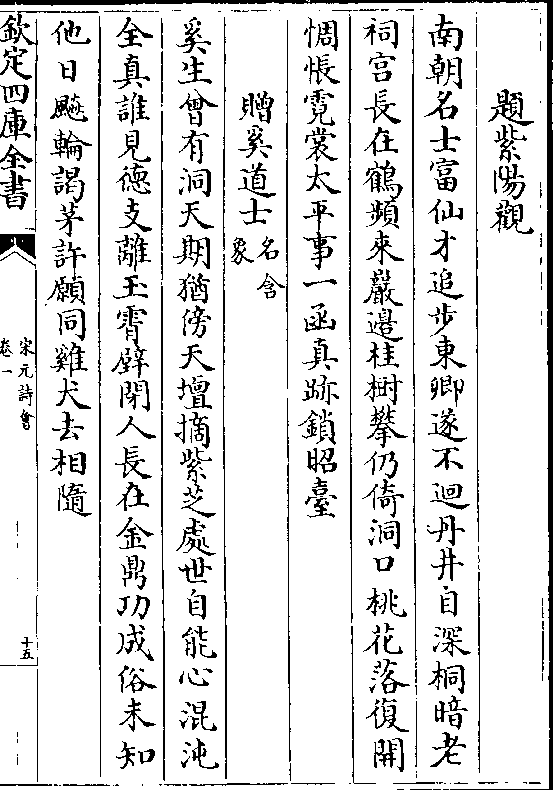 題紫陽觀
南朝名士富仙才追步東卿遂不迴丹井自深桐暗老
祠宫長在鶴頻來巖邉桂樹攀仍倚洞口桃花落復開
惆悵霓裳太平事一函真跡鎖昭臺
贈奚道士名含象
奚生曾有洞天期猶傍天壇摘紫芝處世自能心混沌
全真誰見徳支離玉霄壁閉人長在金鼎功成俗未知
他日飈輪謁茅許願同雞犬去相隨
欽定四庫全書
宋元詩㑹
卷一
十五